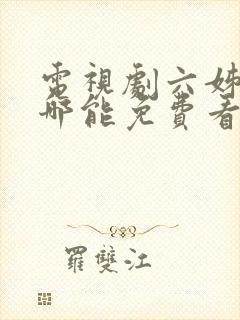 電視劇六姊
哪能免費看
羅雙江